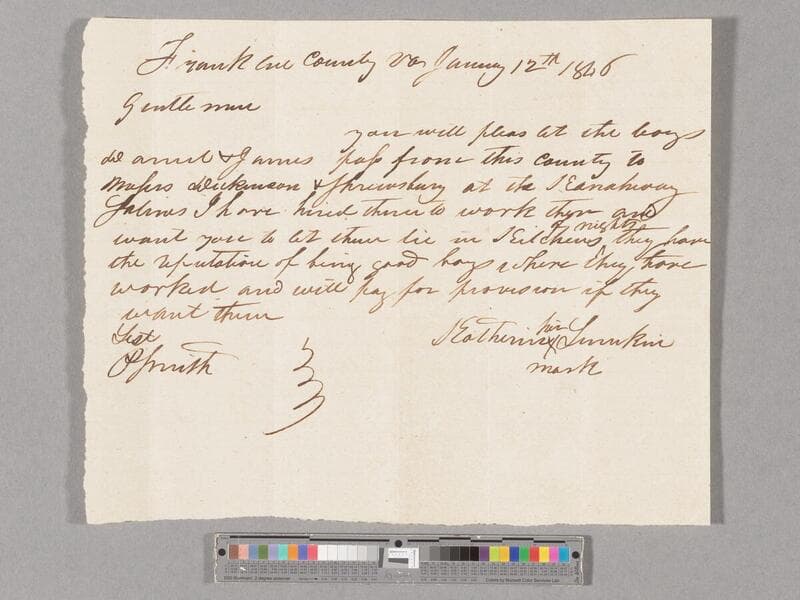 Franklin County Va Januy 12th 1846
Gentlemen
you will pleas let the boys
Daniel & James pass from this county to
Messrs Dickinson & Shrewsbury at the Kanahway
Salines I have hired them to work ther and
of nights
want you to let them lie in Kitchens, they have
the reputation of being good boys where they have
worked and will pay for provision if they
want them
Test
Smith
Katherine her Lumkin
X
mark